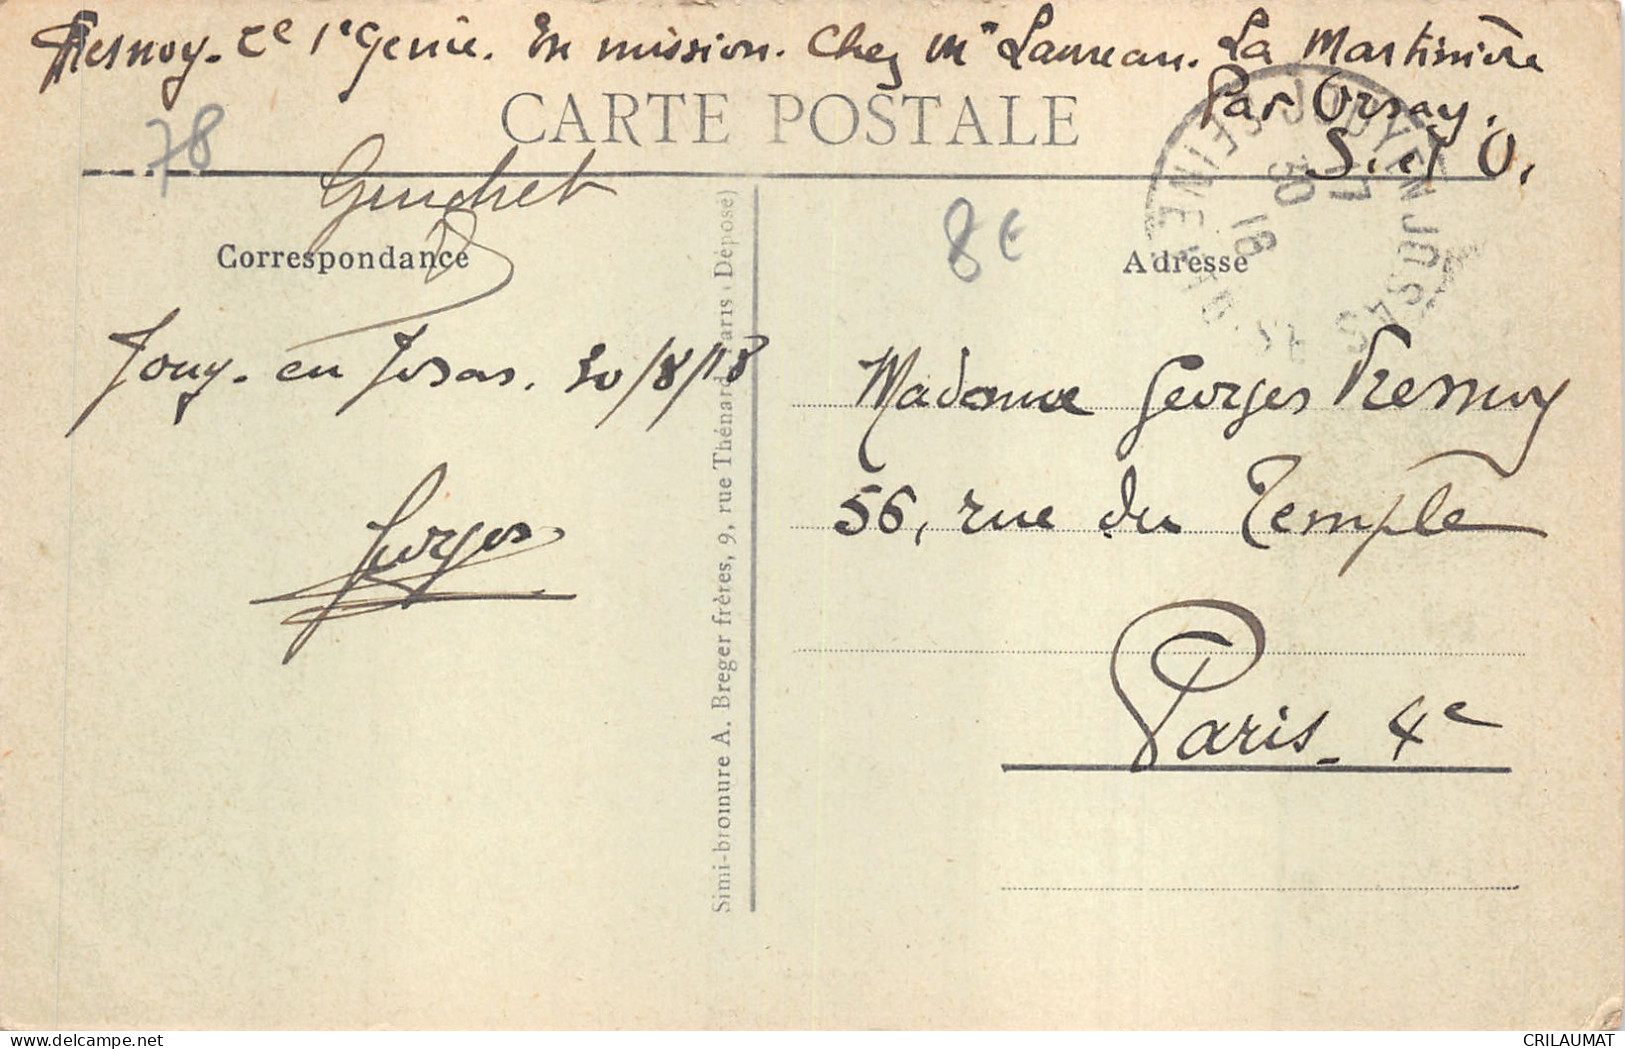 Fresnoy. 2e 1e Génie. En mission. Chez Mr Laureau. La Martinière
Par Orsay.
S. et O.
CARTE POSTALE
78
Guichet
8€
Correspondance
Adresse
JOUY EN JOSAS
SEINE-ET-OISE
17
30
18
Jouy-en Josas. 30/8/18
Georges
Madame Georges Fresnoy
56, rue du Temple
Paris - 4e
Simi-bromure A. Breger frères, 9, rue Thénard, Paris (Déposé)
CRILAUMAT